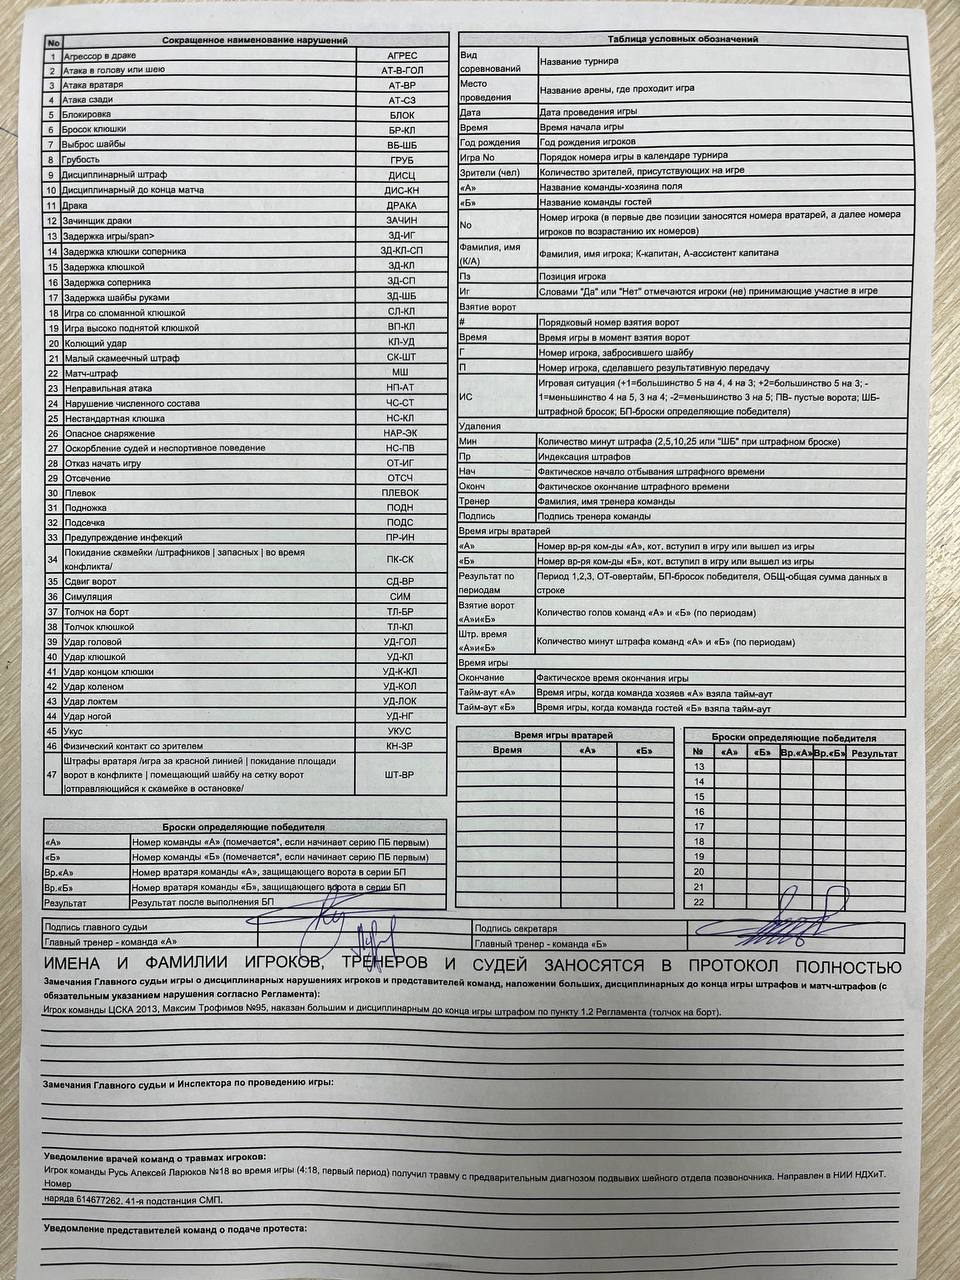 No Сокращенное наименование нарушений
1 Агрессор в драке АГРЕС
2 Атака в голову или шею АТ-В-ГОЛ
3 Атака вратаря АТ-ВР
4 Атака сзади АТ-СЗ
5 Блокировка БЛОК
6 Бросок клюшки БР-КЛ
7 Выброс шайбы ВБ-ШБ
8 Грубость ГРУБ
9 Дисциплинарный штраф ДИСЦ
10 Дисциплинарный до конца матча ДИС-КН
11 Драка ДРАКА
12 Зачинщик драки ЗАЧИН
13 Задержка игры/span> ЗД-ИГ
14 Задержка клюшки соперника ЗД-КЛ-СП
15 Задержка клюшкой ЗД-КЛ
16 Задержка соперника ЗД-СП
17 Задержка шайбы руками ЗД-ШБ
18 Игра со сломанной клюшкой СЛ-КЛ
19 Игра высоко поднятой клюшкой ВП-КЛ
20 Колющий удар КЛ-УД
21 Малый скамеечный штраф СК-ШТ
22 Матч-штраф МШ
23 Неправильная атака НП-АТ
24 Нарушение численного состава ЧС-СТ
25 Нестандартная клюшка НС-КЛ
26 Опасное снаряжение НАР-ЭК
27 Оскорбление судей и неспортивное поведение НС-ПВ
28 Отказ начать игру ОТ-ИГ
29 Отсечение ОТСЧ
30 Плевок ПЛЕВОК
31 Подножка ПОДН
32 Подсечка ПОДС
33 Предупреждение инфекций ПР-ИН
34 Покидание скамейки /штрафников | запасных | во время
конфликта/ ПК-СК
35 Сдвиг ворот СД-ВР
36 Симуляция СИМ
37 Толчок на борт ТЛ-БР
38 Толчок клюшкой ТЛ-КЛ
39 Удар головой УД-ГОЛ
40 Удар клюшкой УД-КЛ
41 Удар концом клюшки УД-К-КЛ
42 Удар коленом УД-КОЛ
43 Удар локтем УД-ЛОК
44 Удар ногой УД-НГ
45 Укус УКУС
46 Физический контакт со зрителем КН-ЗР
47 Штрафы вратаря /игра за красной линией | покидание площади
ворот в конфликте | помещающий шайбу на сетку ворот
|отправляющийся к скамейке в остановке/ ШТ-ВР
Таблица условных обозначений
Вид
соревнований Название турнира
Место
проведения Название арены, где проходит игра
Дата Дата проведения игры
Время Время начала игры
Год рождения Год рождения игроков
Игра No Порядок номера игры в календаре турнира
Зрители (чел) Количество зрителей, присутствующих на игре
«А» Название команды-хозяина поля
«Б» Название команды гостей
No Номер игрока (в первые две позиции заносятся номера вратарей, а далее номера
игроков по возрастанию их номеров)
Фамилия, имя
(К/А) Фамилия, имя игрока; К-капитан, А-ассистент капитана
Пз Позиция игрока
Иг Словами "Да" или "Нет" отмечаются игроки (не) принимающие участие в игре
Взятие ворот
# Порядковый номер взятия ворот
Время Время игры в момент взятия ворот
Г Номер игрока, забросившего шайбу
П Номер игрока, сделавшего результативную передачу
ИС Игровая ситуация (+1=большинство 5 на 4, 4 на 3; +2=большинство 5 на 3; -
1=меньшинство 4 на 5, 3 на 4; -2=меньшинство 3 на 5; ПВ- пустые ворота; ШБ-
штрафной бросок; БП-броски определяющие победителя)
Удаления
Мин Количество минут штрафа (2,5,10,25 или "ШБ" при штрафном броске)
Пр Индексация штрафов
Нач Фактическое начало отбывания штрафного времени
Оконч Фактическое окончание штрафного времени
Тренер Фамилия, имя тренера команды
Подпись Подпись тренера команды
Время игры вратарей
«А» Номер вр-ря ком-ды «А», кот. вступил в игру или вышел из игры
«Б» Номер вр-ря ком-ды «Б», кот. вступил в игру или вышел из игры
Результат по
периодам Период 1,2,3, ОТ-овертайм, БП-бросок победителя, ОБЩ-общая сумма данных в
строке
Взятие ворот
«А»и«Б» Количество голов команд «А» и «Б» (по периодам)
Штр. время
«А»и«Б» Количество минут штрафа команд «А» и «Б» (по периодам)
Время игры
Окончание Фактическое время окончания игры
Тайм-аут «А» Время игры, когда команда хозяев «А» взяла тайм-аут
Тайм-аут «Б» Время игры, когда команда гостей «Б» взяла тайм-аут
Время игры вратарей
Время «А» «Б»
Броски определяющие победителя
№ «А» «Б» Вр.«А» Вр.«Б» Результат
13
14
15
16
17
18
19
20
21
22
Броски определяющие победителя
«А» Номер команды «А» (помечается*, если начинает серию ПБ первым)
«Б» Номер команды «Б» (помечается*, если начинает серию ПБ первым)
Вр.«А» Номер вратаря команды «А», защищающего ворота в серии БП
Вр.«Б» Номер вратаря команды «Б», защищающего ворота в серии БП
Результат Результат после выполнения БП
Подпись главного судьи Подпись секретаря
Главный тренер - команда «А» Главный тренер - команда «Б»
ИМЕНА И ФАМИЛИИ ИГРОКОВ, ТРЕНЕРОВ И СУДЕЙ ЗАНОСЯТСЯ В ПРОТОКОЛ ПОЛНОСТЬЮ
Замечания Главного судьи игры о дисциплинарных нарушениях игроков и представителей команд, наложении больших, дисциплинарных до конца игры штрафов и матч-штрафов (с
обязательным указанием нарушения согласно Регламента):
Игрок команды ЦСКА 2013, Максим Трофимов №95, наказан большим и дисциплинарным до конца игры штрафом по пункту 1.2 Регламента (толчок на борт).
Замечания Главного судьи и Инспектора по проведению игры:
Уведомление врачей команд о травмах игроков:
Игрок команды Русь Алексей Ларюков №18 во время игры (4:18, первый период) получил травму с предварительным диагнозом подвывих шейного отдела позвоночника. Направлен в НИИ НДХиТ.
Номер
наряда 614677262. 41-я подстанция СМП.
Уведомление представителей команд о подаче протеста: